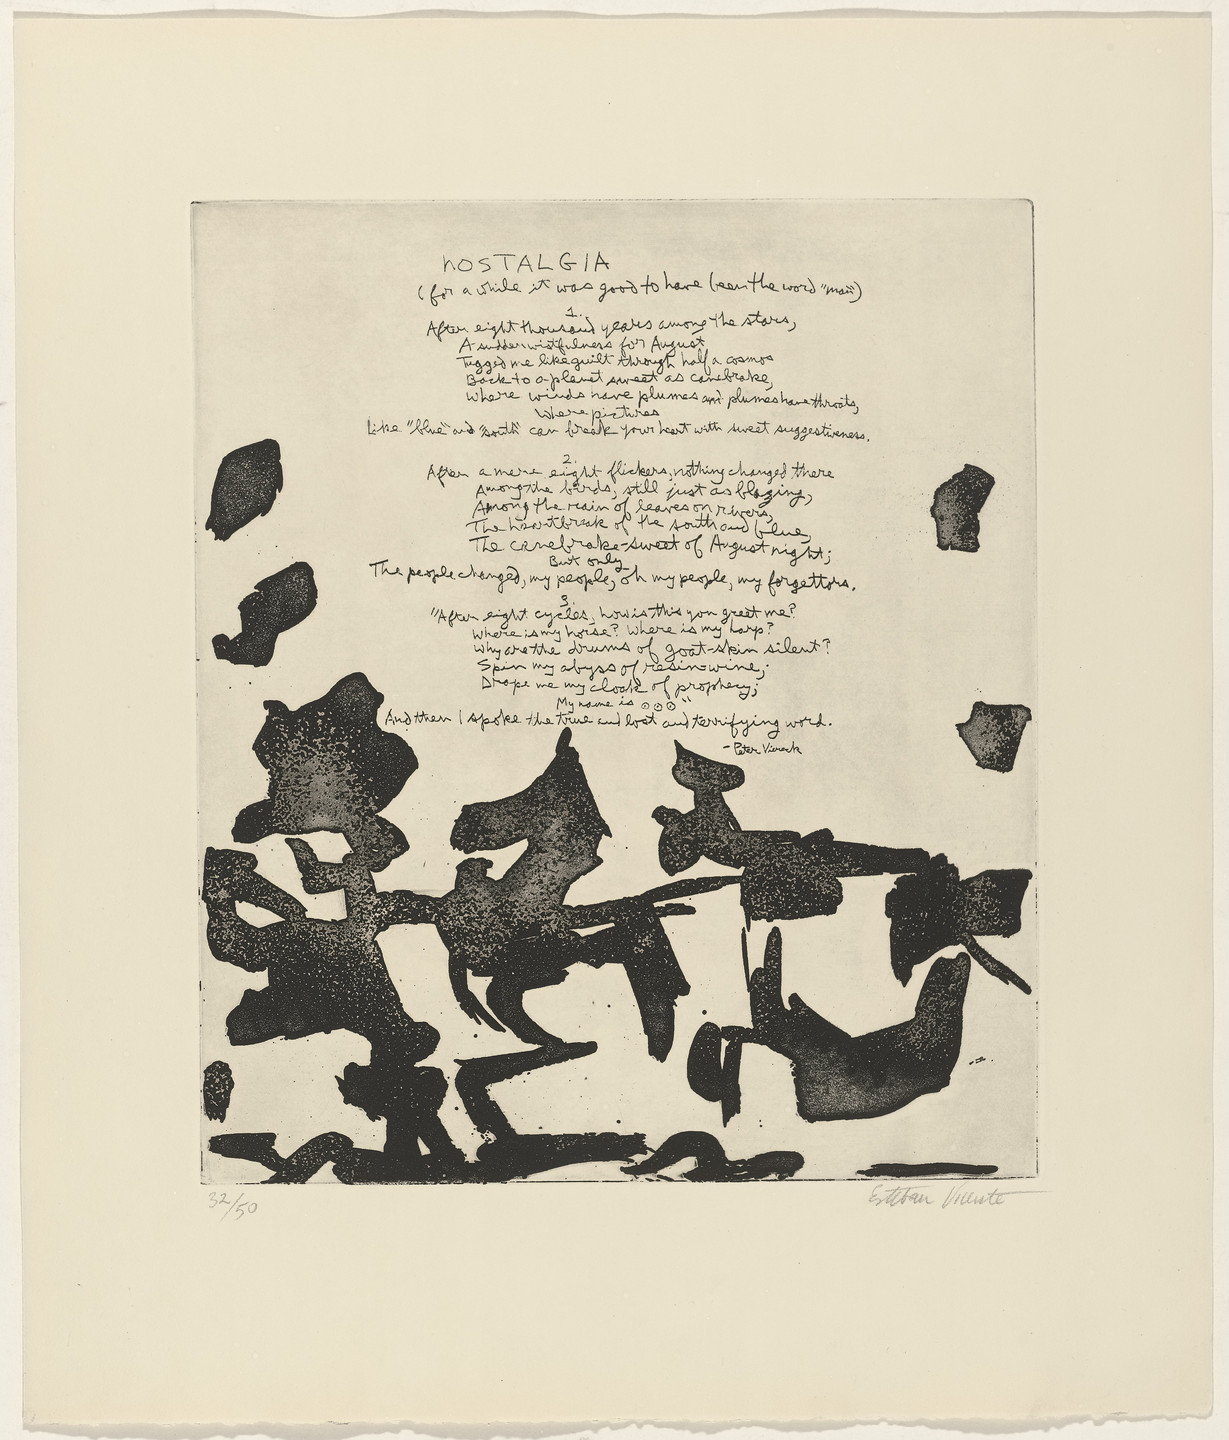 NOSTALGIA
(for a while it was good to have been the word "man")
1.
After eight thousand years among the stars,
A sudden wistfulness for August
Tugged me like guilt through half a cosmos
Back to a planet sweet as canebrake,
Where winds have plumes and plumes have throats,
Where pictures
Like "blue" and "south" can break your heart with sweet suggestiveness.
2.
After a mere eight flickers, nothing changed there
Among the birds, still just as blazing,
Among the rain of leaves on rivers,
The heartbreak of the south and blue,
The canebrake-sweet of August night;
But only
The people changed, my people, oh my people, my forgettors.
3.
"After eight cycles, how is this you greet me?
Where is my horse? Where is my harp?
Why are the drums of goat-skin silent?
Spin my abyss of resin-wine;
Drape me my cloak of prophecy;
My name is ⊙⊙⊙"
And then I spoke the true and lost and terrifying word.
-Peter Viereck
32/50 Esteban Vicente